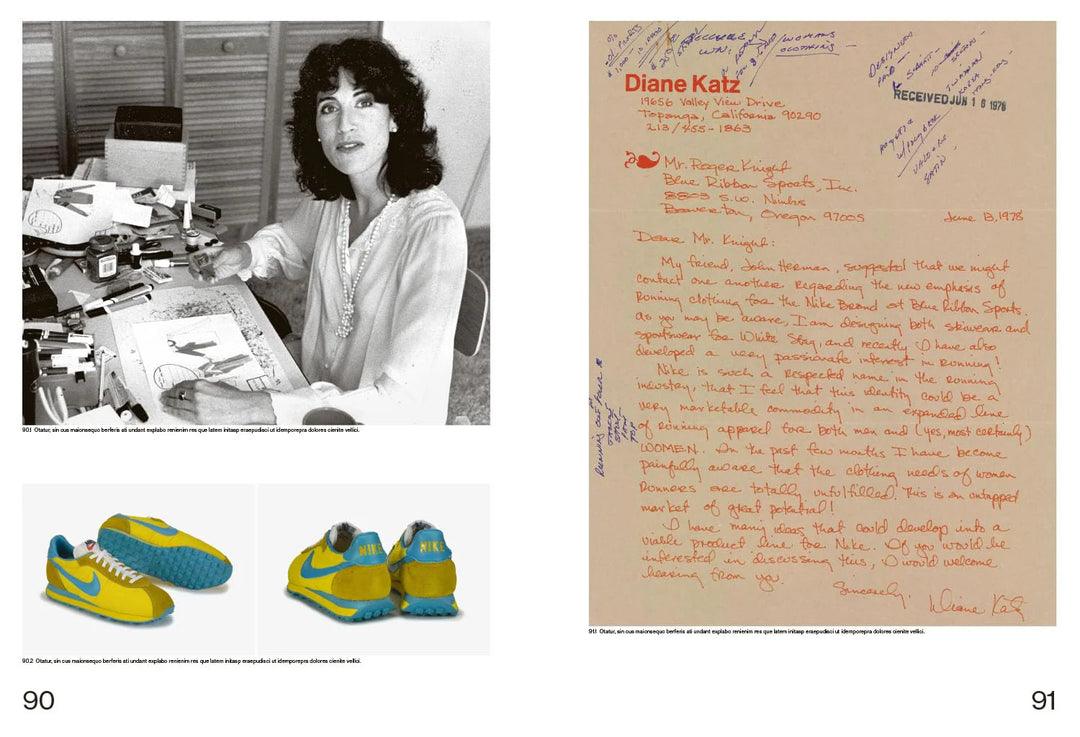 90.1 Otatur, sin cus maionsequo berferis ati undant explabo renienim res que latem initasp eraepudisci ut idemporepra dolores cienite vellici.
NIKE
NIKE
90.2 Otatur, sin cus maionsequo berferis ati undant explabo renienim res que latem initasp eraepudisci ut idemporepra dolores cienite vellici.
90
WOMANS
CLOTHING
DESIGNER
PAID
RECEIVED JUN 16 1978
Diane Katz
19656 Valley View Drive
Topanga, California 90290
213/455-1863
Mr. Roger Knight
Blue Ribbon Sports, Inc.
8803 S.W. Nimbus
Beaverton, Oregon 97005
June 13, 1978
Dear Mr. Knight:
My friend, John Herman, suggested that we might
contact one another regarding the new emphasis of
running clothing for the Nike Brand at Blue Ribbon Sports.
As you may be aware, I am designing both skiwear and
sportswear for White Stag, and recently I have also
developed a very passionate interest in running!
Nike is such a respected name in the running
industry, that I feel that this identity could be a
very marketable commodity in an expanded line
of running apparel for both men and (yes, most certainly)
WOMEN. In the past few months I have become
painfully aware that the clothing needs of women
runners are totally unfulfilled. This is an untapped
market of great potential!
I have many ideas that could develop into a
viable product line for Nike. If you would be
interested in discussing this, I would welcome
hearing from you.
Sincerely,
Diane Katz
91.1 Otatur, sin cus maionsequo berferis ati undant explabo renienim res que latem initasp eraepudisci ut idemporepra dolores cienite vellici.
91